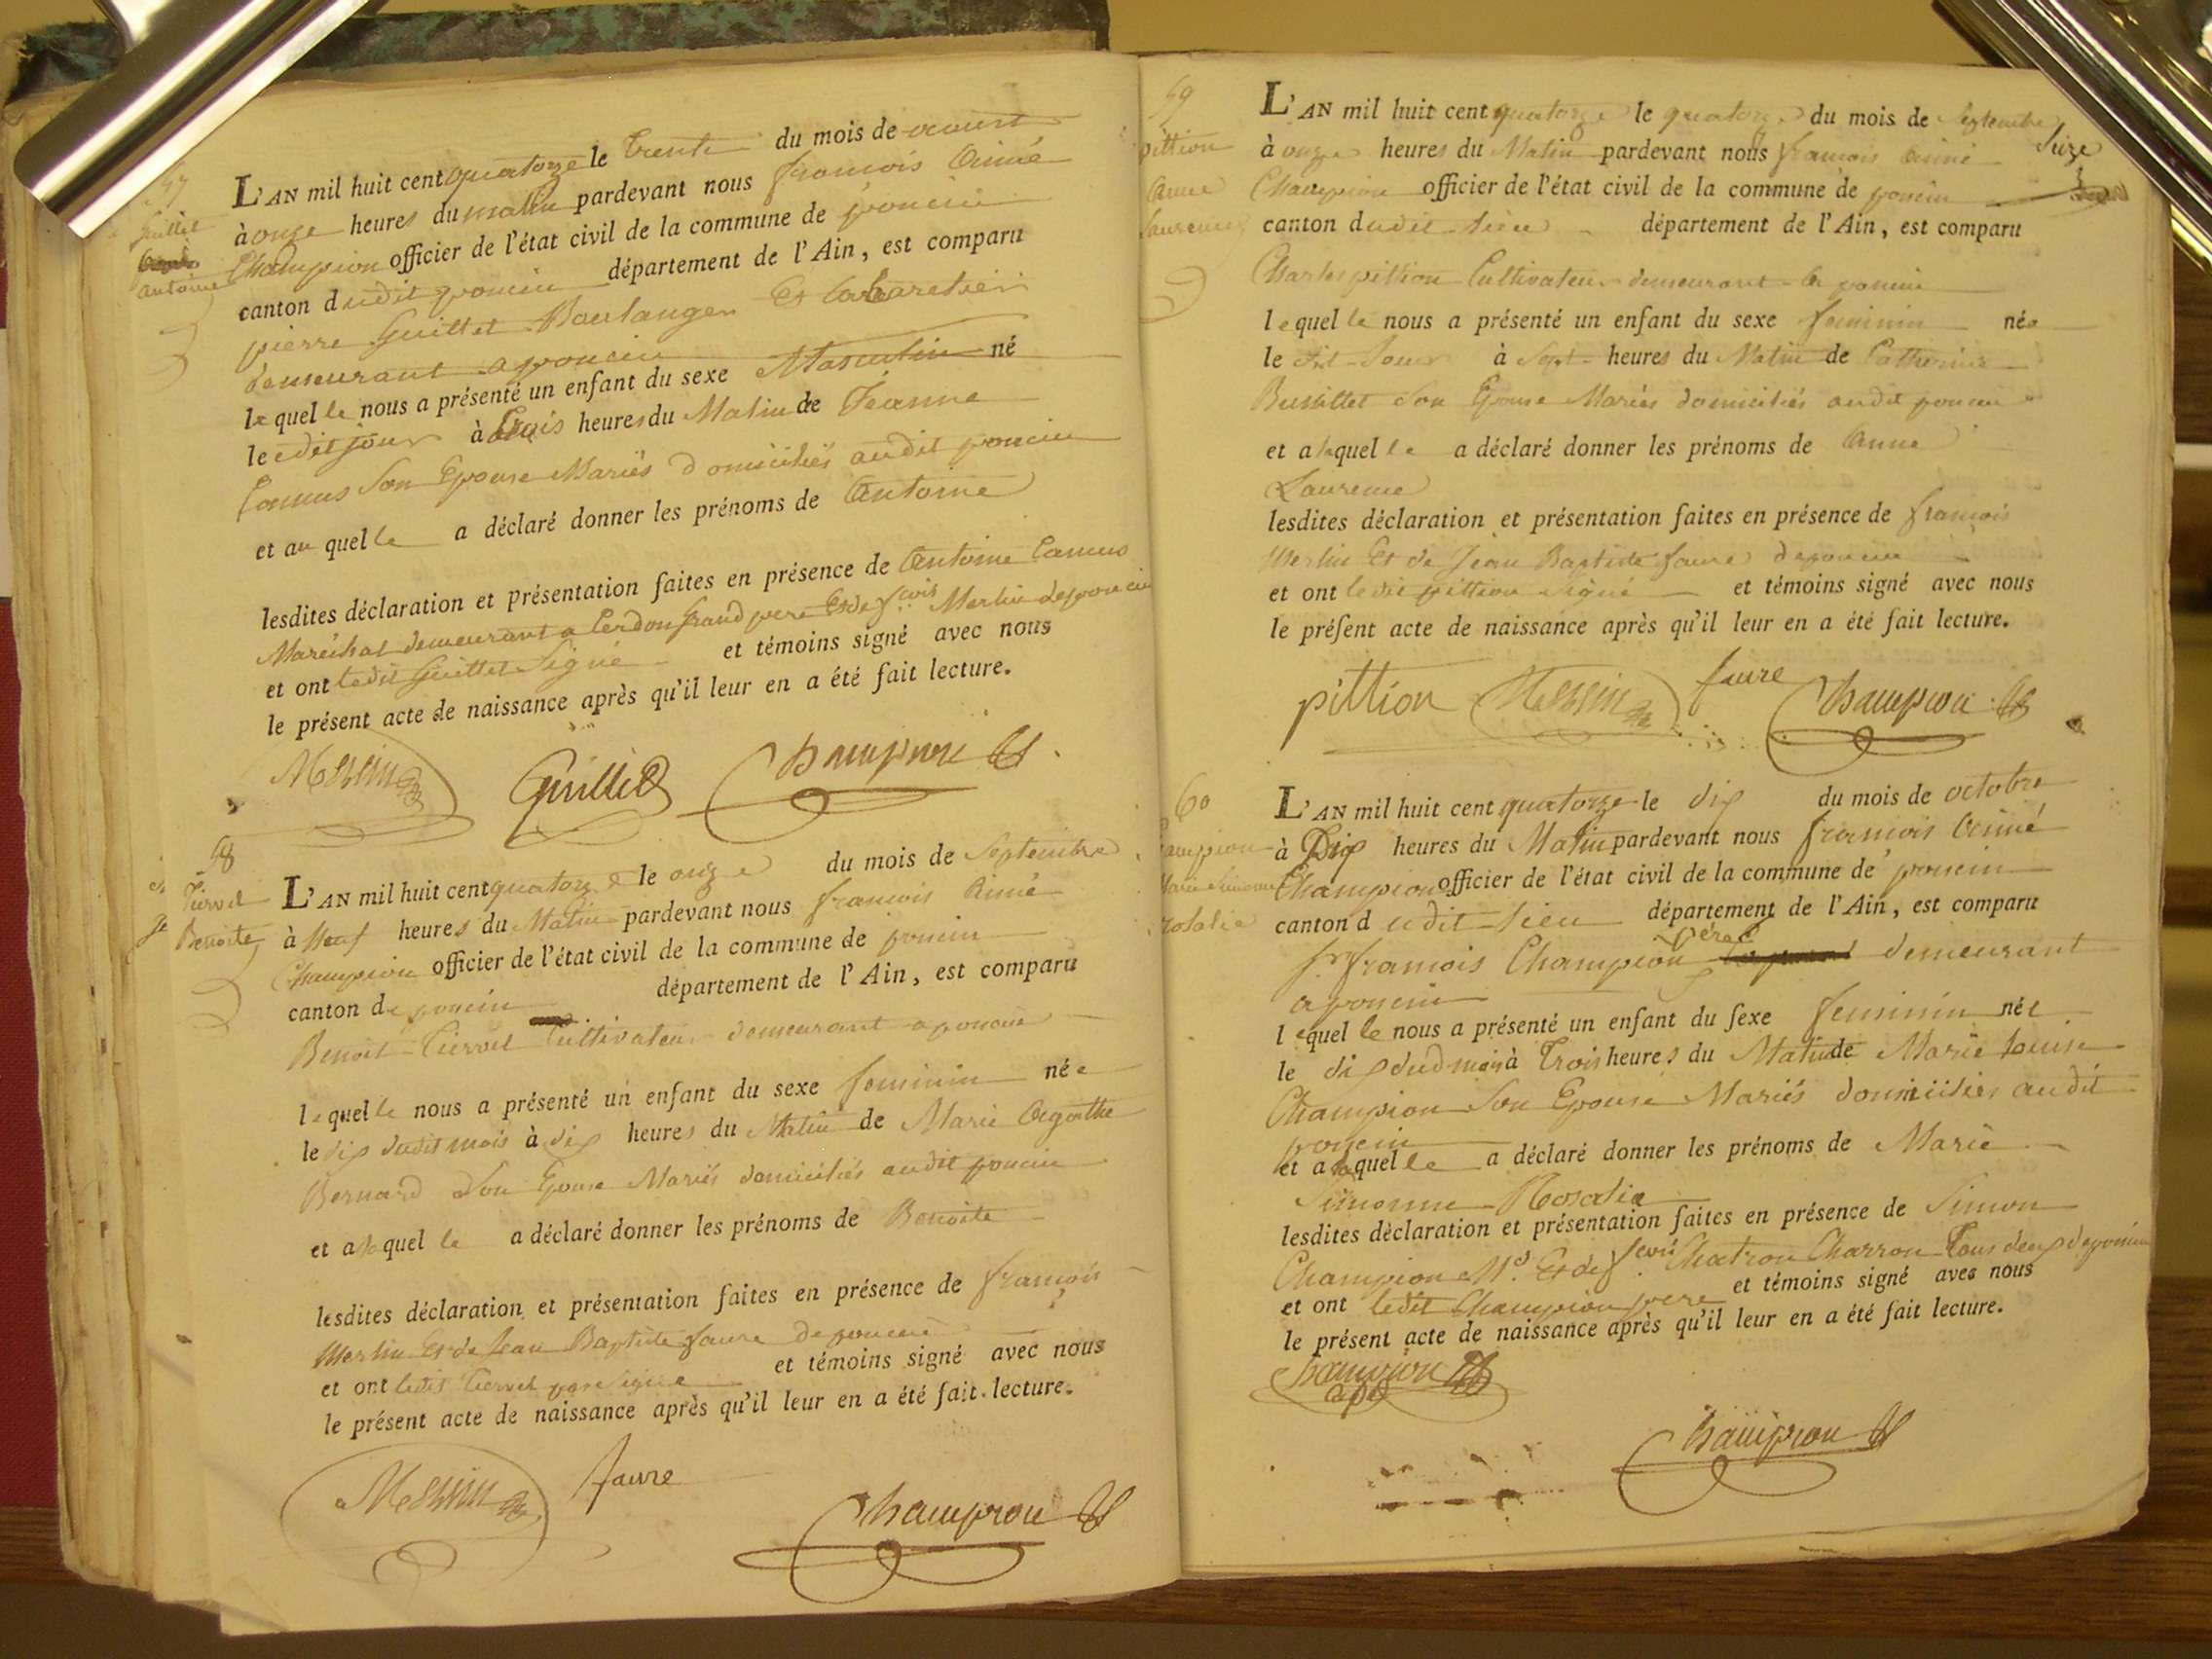 57
Guillet
Antoine
L'AN mil huit cent quatorze le trente du mois de aoust
à onze heures du matin pardevant nous francois Aimé
Champion officier de l'état civil de la commune de poncin
canton dudit poncin département de l'Ain, est comparu
pierre Guillet Boulanger Et Cabaretier
demeurant a poncin
lequel le nous a présenté un enfant du sexe Masculin né
le edit jour à trois heures du Matin de Jeanne
Camus Son Epouse Mariés domiciliés audit poncin
et au quel le a déclaré donner les prénoms de Antoine
lesdites déclaration et présentation faites en présence de Antoine Camus
Maréchal demeurant a Cerdon grand pere Et de fcois Merlin de poncin
et ont ledit Guillet Signé et témoins signé avec nous
le présent acte de naissance après qu'il leur en a été fait lecture.
Guillet Champion
58
Tiervel
Benoite
L'AN mil huit cent quatorze le onze du mois de Septembre
à Neuf heures du Matin pardevant nous francois Aimé
Champion officier de l'état civil de la commune de poncin
canton de poncin département de l'Ain, est comparu
Benoit Tiervel Cultivateur demeurant a poncin
lequel le nous a présenté un enfant du sexe feminin née
le dix dudit mois à dix heures du Matin de Marie Agathe
Bernard Son Epouse Mariés domiciliés audit poncin
et a laquel le a déclaré donner les prénoms de Benoite
lesdites déclaration et présentation faites en présence de francois
Merlin Et de Jean Baptiste faure de poncin
et ont ledit Tiervel pere signé et témoins signé avec nous
le présent acte de naissance après qu'il leur en a été fait lecture.
faure
Champion
59
pittion
Anne
Laurence
L'AN mil huit cent quatorze le quatorze du mois de Septembre
Seize
à onze heures du Matin pardevant nous francois Aimé
Champion officier de l'état civil de la commune de poncin
canton dudit lieu département de l'Ain, est comparu
Charles pittion Cultivateur demeurant a poncin
lequel le nous a présenté un enfant du sexe feminin née
le dit Jour à Sept heures du Matin de Catherine
Bussillet Son Epouse Mariés domiciliés audit poncin
et a laquel le a déclaré donner les prénoms de Anne
Laurence
lesdites déclaration et présentation faites en présence de francois
Merlin Et de Jean Baptiste faure de poncin
et ont ledit pittion signé et témoins signé avec nous
le présent acte de naissance après qu'il leur en a été fait lecture.
pittion faure Champion
60
Champion
Marie Simonne
rosalie
L'AN mil huit cent quatorze le dix du mois de octobre
à Dix heures du Matin pardevant nous francois Aimé
Champion officier de l'état civil de la commune de poncin
canton dudit lieu département de l'Ain, est comparu
père
Sr francois Champion demeurant
a poncin
lequel le nous a présenté un enfant du sexe feminin née
le dix dud mois à trois heures du Matin de Marie Louise
Champion Son Epouse Mariés domiciliés audit
poncin
et a laquel le a déclaré donner les prénoms de Marie
Simonne Rosalie
lesdites déclaration et présentation faites en présence de Simon
Champion Md. Et de fcois Chatron Charron tous deux de poncin
et ont ledit Champion pere et témoins signé avec nous
le présent acte de naissance après qu'il leur en a été fait lecture.
Champion
Champion